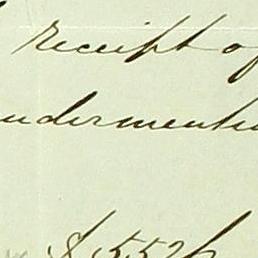 receipt of
undermentio
$5526